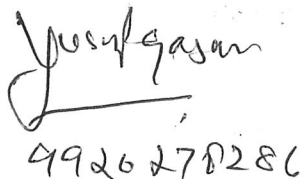 Yusuf Gasan
9926278286